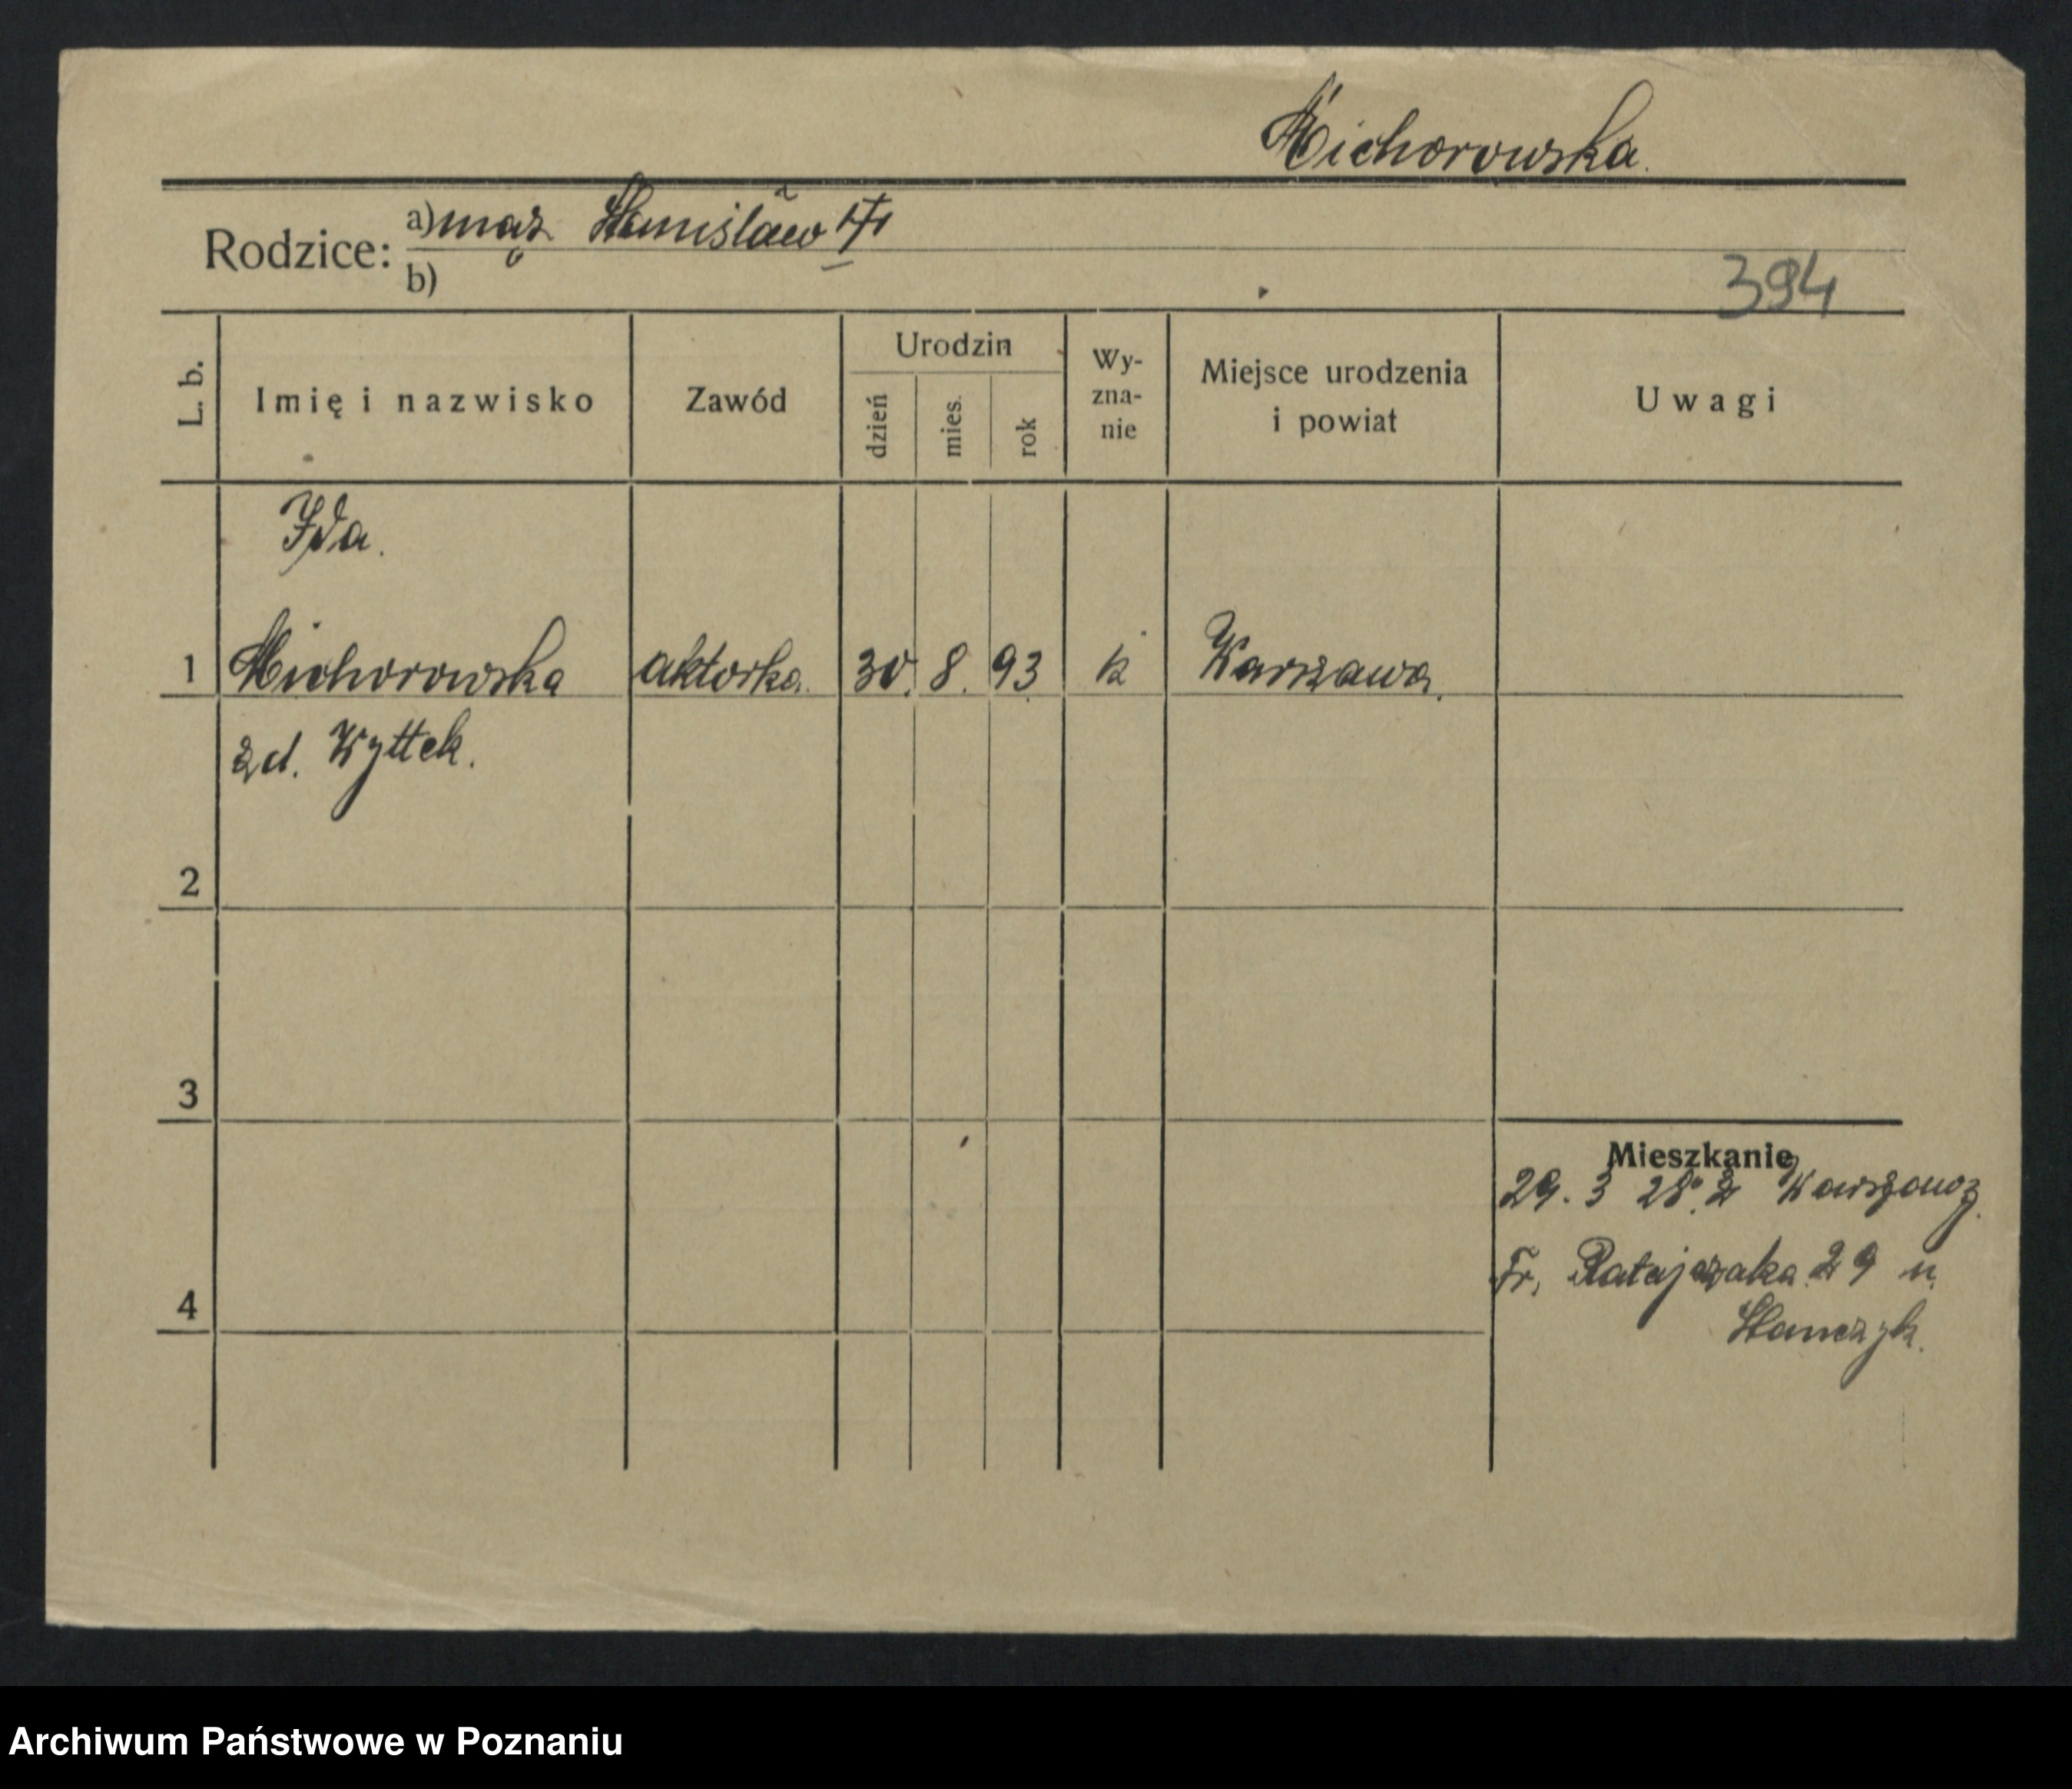 Michorowska.
Rodzice: a) mąż Stanisław
b)
394
L. b.
Imię i nazwisko
Zawód
Urodzin
dzień
mies.
rok
Wy-
zna-
nie
Miejsce urodzenia
i powiat
Uwagi
Ida.
1 Michorowska aktorka. 30. 8. 93 k Warszawa.
zd. Wyttek.
2
3
Mieszkanie
29. 3 28. z Warszawy
Fr. Ratajczaka 29 u.
4
Stanczyk.
Archiwum Państwowe w Poznaniu